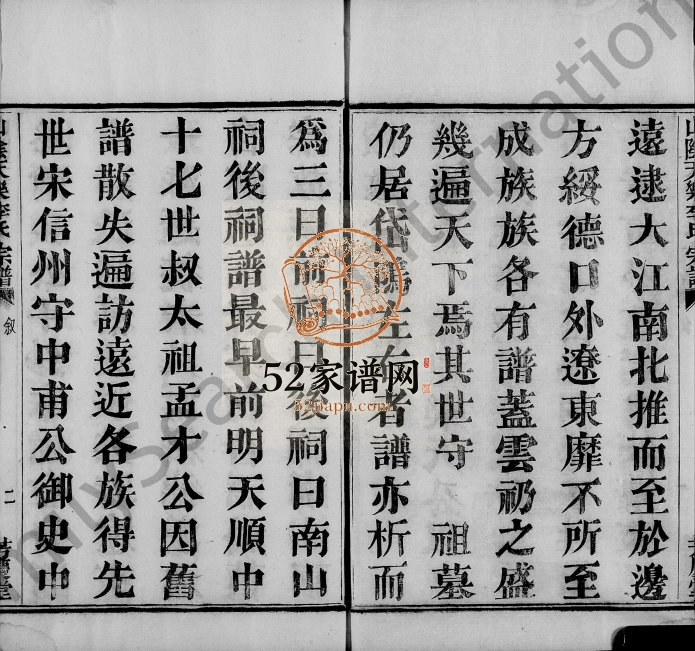 遠逮大江南北推而至於邊
方綏德口外遼東靡不所至
成族族各有譜蓋雲礽之盛
幾遍天下焉其世守 祖墓
仍居岱 左右者譜亦析而
爲三曰前祠曰後祠曰南山
祠後祠譜最早前明天順中
十七世叔太祖孟才公因舊
譜散失遍訪遠近各族得先
世宋信州守中甫公御史中
山陰天樂李氏宗譜 敘 二
52家谱网
52jiapu.com